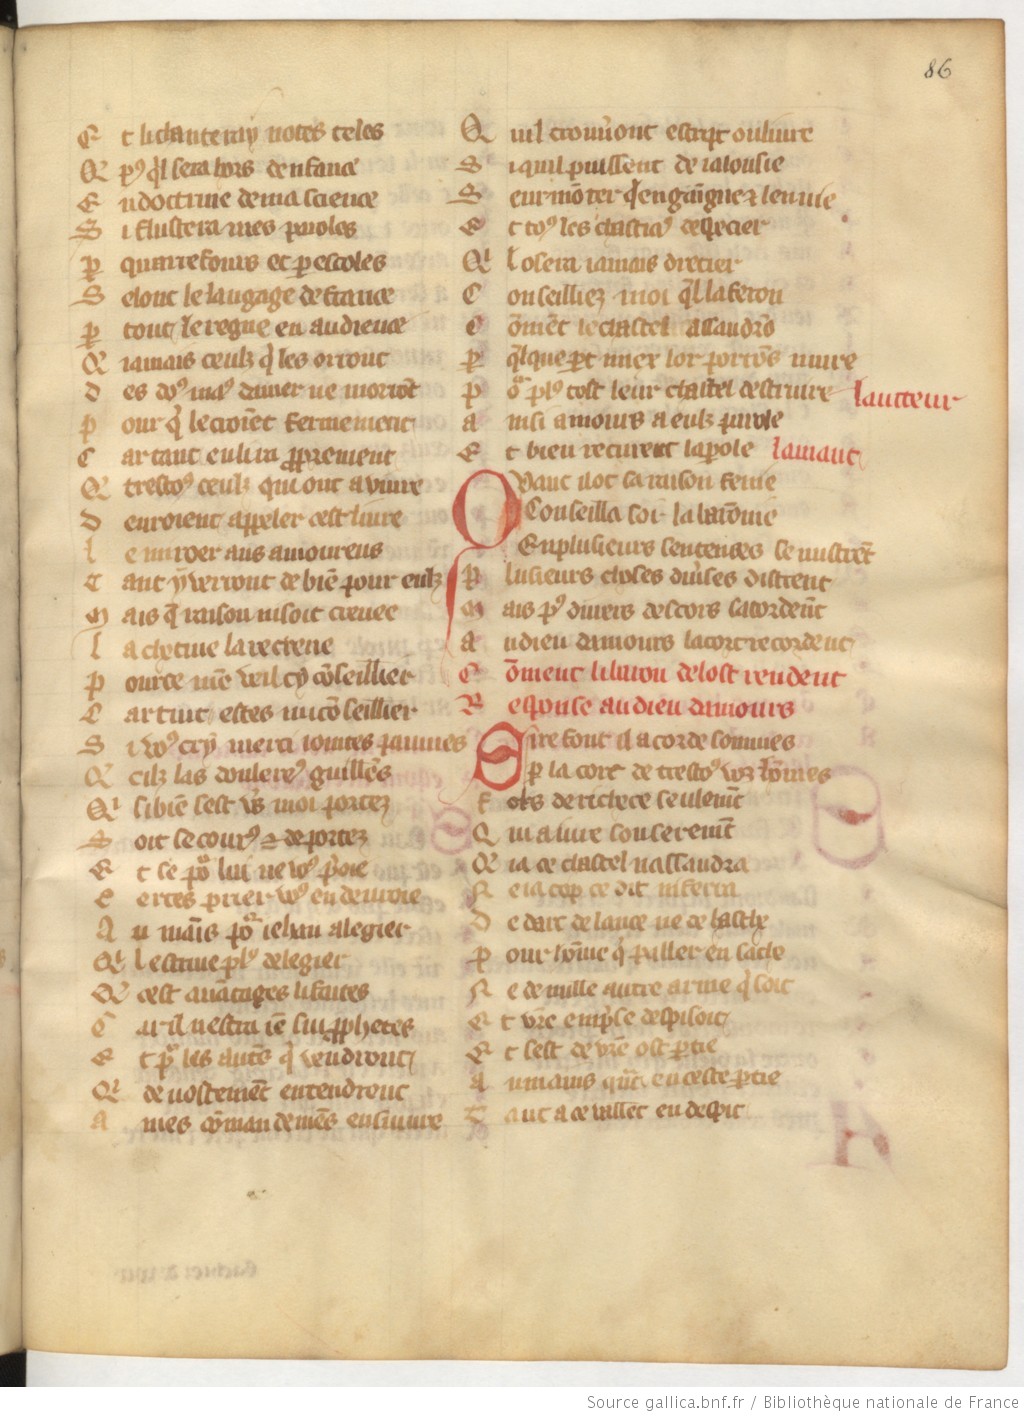 86
Et li chanteray notes teles
Q͛ p9 q̄l sera hors denfance
En doctrine de ma science
Si flustera mes paroles
ꝑ quarrefours et ꝑ escoles
Selonc le langage de france
ꝑ tout le regne en audience
Q͛ iamais ceulz q̄ les orront
des do9 max damer ne morrōt
pour q̄ le croiēt fermement
Car tant en lira ꝓprement
Q͛ tresto9 ceulz qui ont a viure
Deuroient appeler cest liure
le miroer aus amoureus
Tant y verront de biē pour eulz
Mais q̄ raison ni soit creuee
la chetiue la recreue
pour ce mē veil cy cōseillier
Car tuit estes mi cōseillier
Si vo9 cry merci iointes paumes
Q͛ cilz las doulere9 guillēs
Qi si biē sest v̄s moi portez
Soit secouru9 et deportez
Et se po᷑ lui ne vo9 p̄oie
Certes prier vo9 en deuroie
Au mains po᷑ iehan alegier
Qil escriue pl9 de legier
Q͛ cest auātages li faites
Car il nestra iē sui ꝓphetes
Et po᷑ les autēs q̄ vendront
Qi deuostemēt entendront
A mes cōmandemēs ensuiure
Quil trouuōnt escript ou liure
Si quil puissent de ialousie
Surmōter q̄ engaīgne z lenuie
Et to9 les chastiax despecier
Qil osera iamais drecier
Conseilliez moi q̄l la feron
Cōmēt le chastel assaudrōs
ꝑ q̄lque ꝑt miex lor porrōs nuire
po᷑ pl9 tost leur chastel destruire lautteur
ainsi amours a eulz parole
Et bien recurent la ꝑole lamant
Quant il ot sa raison fenie
Conseilla soi la barōnie
En plusieurs sentenses se mistrēt
Plusieurs choses diūses distrent
Mais p9 diuers descors sacordēnt
au dieu damours lacort recordent
Cōment li baron de lost rendent
Response au dieu damours
Sire font il acorde sommes
ꝑ la cort de tresto9 voz hōmes
Fors de richece seulemēt
Qui a iure son seremēt
Q͛ ia ce chastel nassaudra
Ne ia cop ce dit ni ferra
De dart de lance ne de hache
Pour hōme q̄ parller en sache
Ne de nulle autre arme q̄ soit
Et vr̄e emp̄se despisoit
Et sest de vr̄e ost ꝑtie
Au mains quāt en ceste ꝑtie
Tant a ce vallet en despit